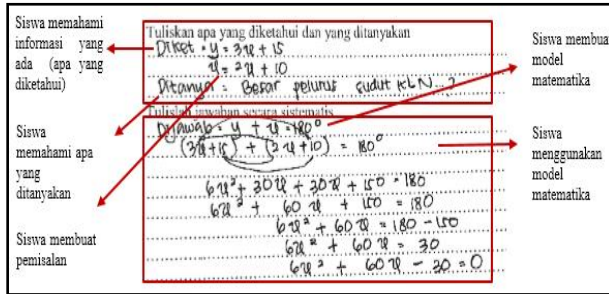 Siswa memahami
informasi yang
ada (apa yang
diketahui)
Siswa
memahami apa
yang
ditanyakan
Siswa membuat
pemisalan
Tuliskan apa yang diketahui dan yang ditanyakan
Diket : y = 3x + 15
x = 2x + 10
Ditanya : Besar pelurus sudut KLN ?
Tulislah jawaban secara sistematis
Dijawab = y + x = 180°
(3x+15) + (2x+10) = 180°
6x² + 30x + 30x + 150 = 180
6x² + 60x + 150 = 180
6x² + 60x = 180 - 150
6x² + 60x = 30
6x² + 60x - 30 = 0
Siswa membuat
model
matematika
Siswa
menggunakan
model
matematika